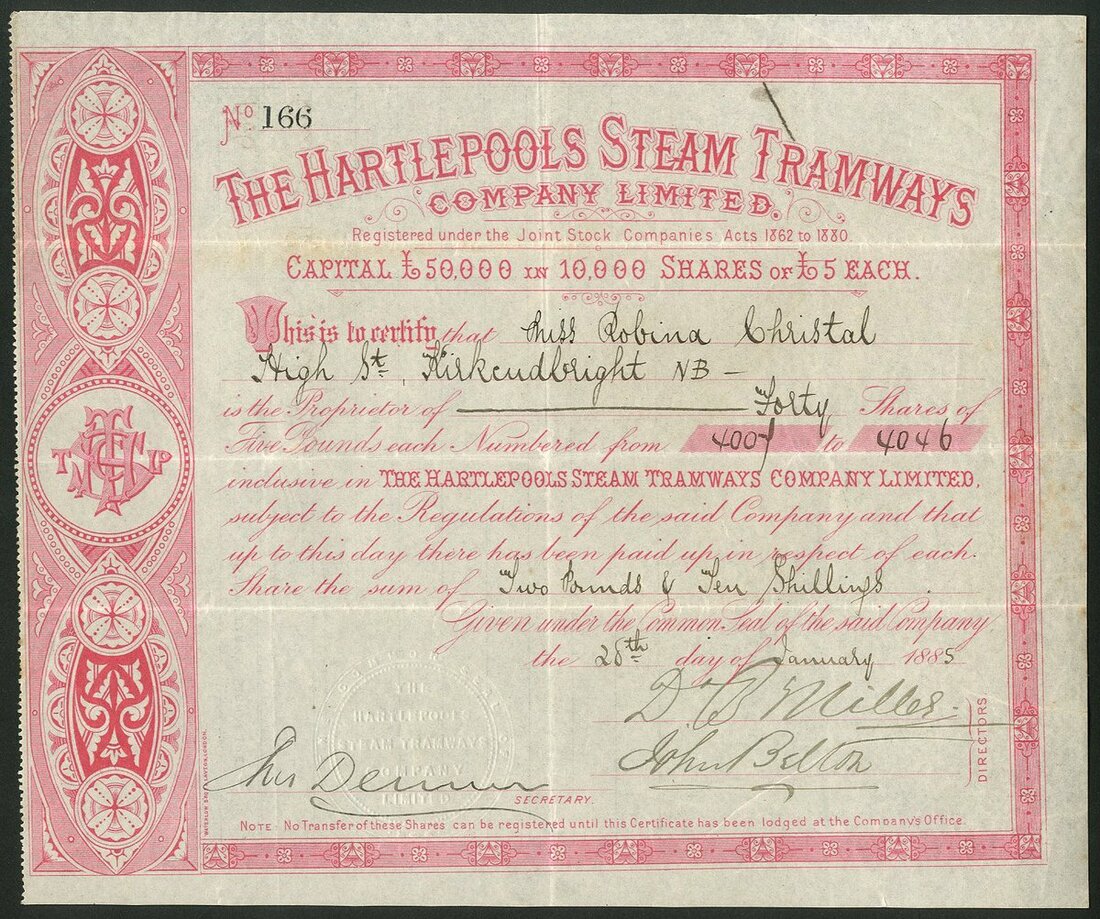 No 166
THE HARTLEPOOLS STEAM TRAMWAYS
COMPANY LIMITED.
Registered under the Joint Stock Companies Acts 1862 to 1880.
CAPITAL £50,000 IN 10,000 SHARES OF £5 EACH.
This is to certify that Miss Robina Christal
High St, Kirkcudbright NB –
is the Proprietor of Forty Shares of
Five Pounds each Numbered from 4007 to 4046
inclusive in THE HARTLEPOOLS STEAM TRAMWAYS COMPANY LIMITED,
subject to the Regulations of the said Company and that
up to this day there has been paid up in respect of each
Share the sum of Two Pounds & Ten Shillings.
Given under the Common Seal of the said Company
the 28th day of January 1885
D B Miller
John Belton
DIRECTORS
THE
HARTLEPOOLS
STEAM TRAMWAYS
COMPANY
LIMITED
SECRETARY.
NOTE: No Transfer of these Shares can be registered until this Certificate has been lodged at the Company's Office.
WATERLOW BROS & LAYTON, LONDON.